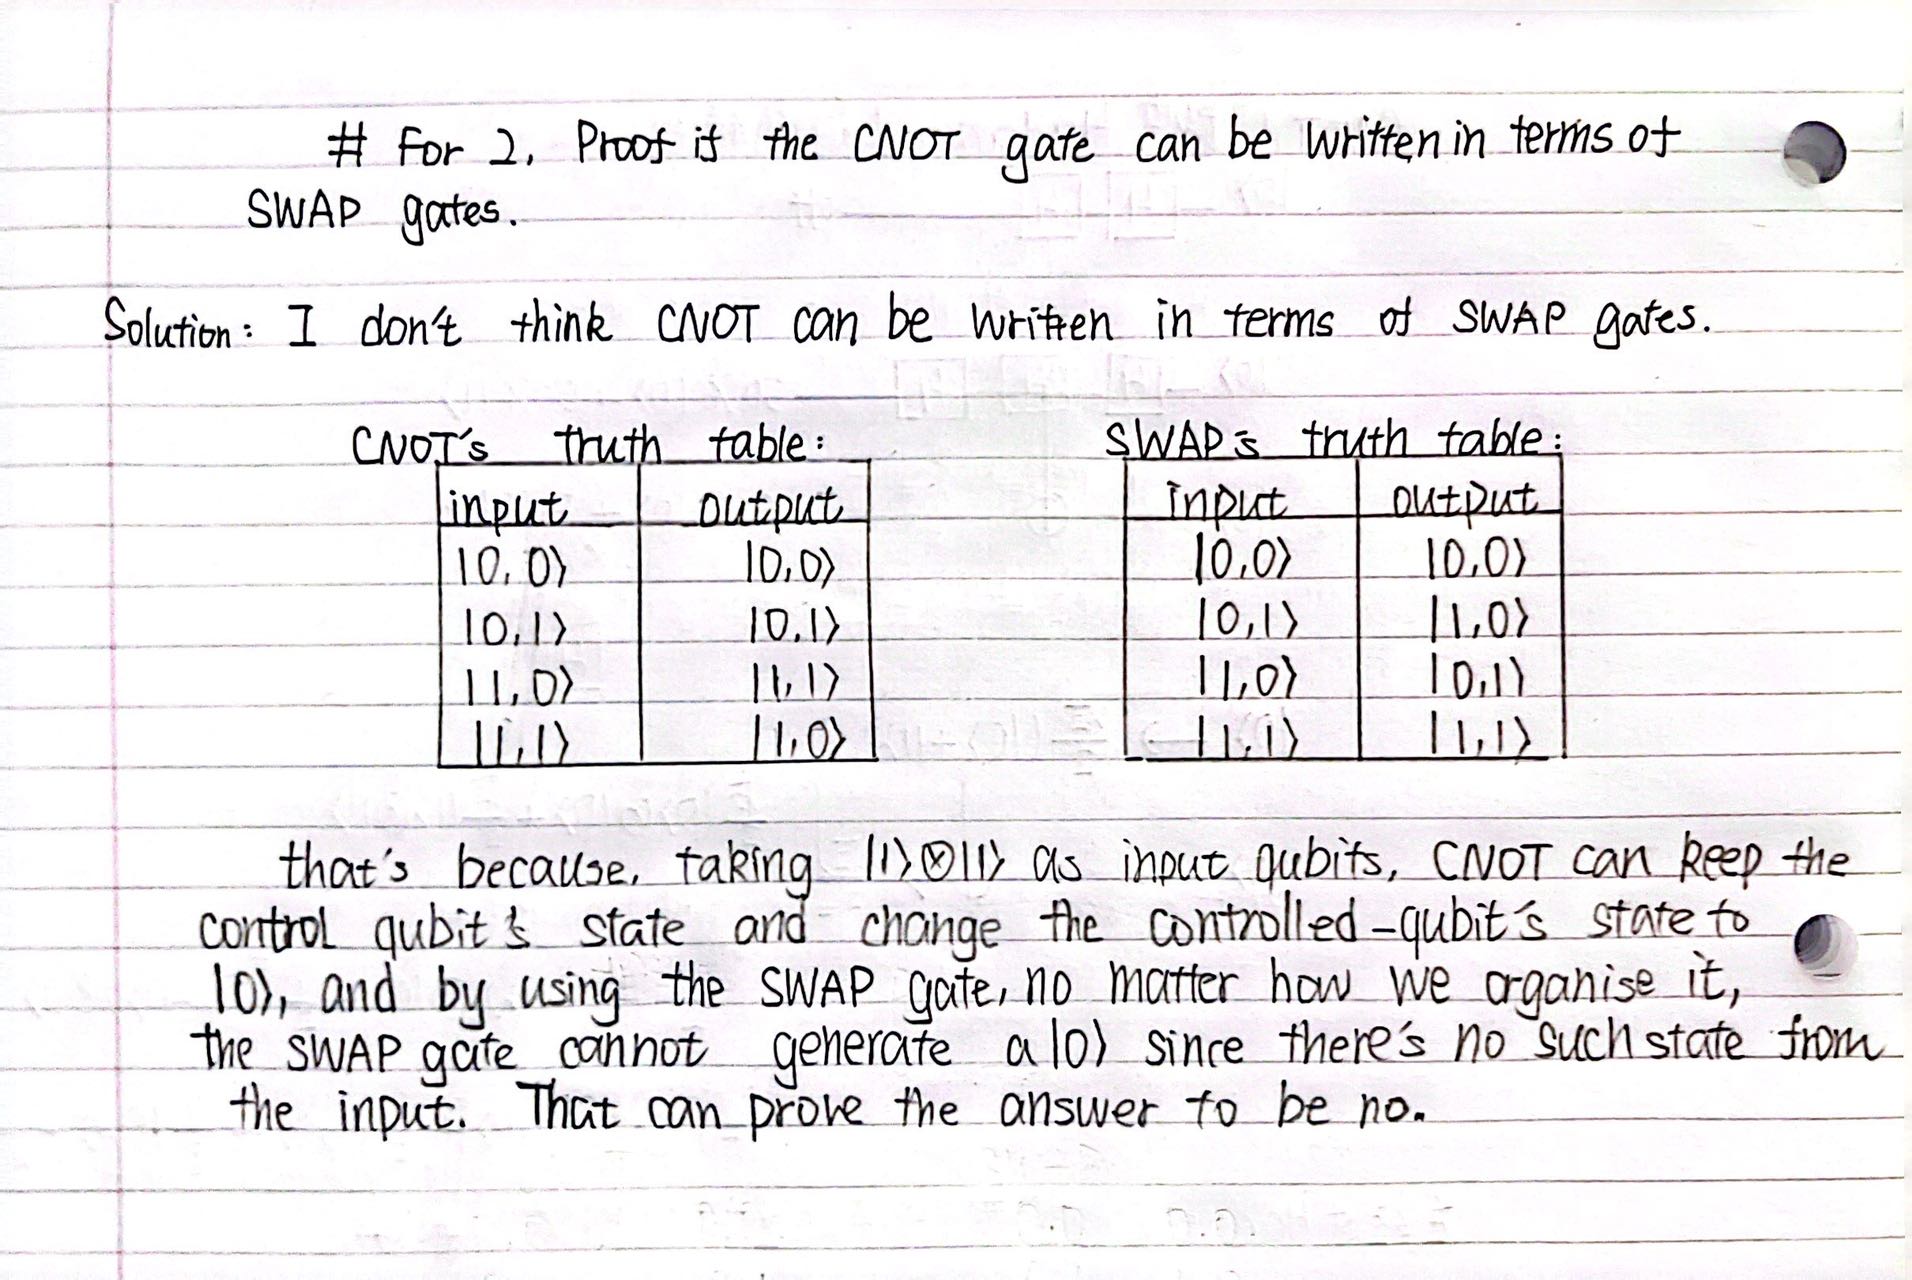 # For 2. Proof if the CNOT gate can be written in terms of
SWAP gates.
Solution: I don't think CNOT can be written in terms of SWAP gates.
CNOT's truth table: SWAP's truth table:
input output input output
|0,0⟩ |0,0⟩ |0,0⟩ |0,0⟩
|0,1⟩ |0,1⟩ |0,1⟩ |1,0⟩
|1,0⟩ |1,1⟩ |1,0⟩ |0,1⟩
|1,1⟩ |1,0⟩ |1,1⟩ |1,1⟩
that's because, taking |1⟩⊗|1⟩ as input qubits, CNOT can keep the
control qubit's state and change the controlled-qubit's state to
|0⟩, and by using the SWAP gate, no matter how we organise it,
the SWAP gate cannot generate a |0⟩ since there's no such state from
the input. That can prove the answer to be no.